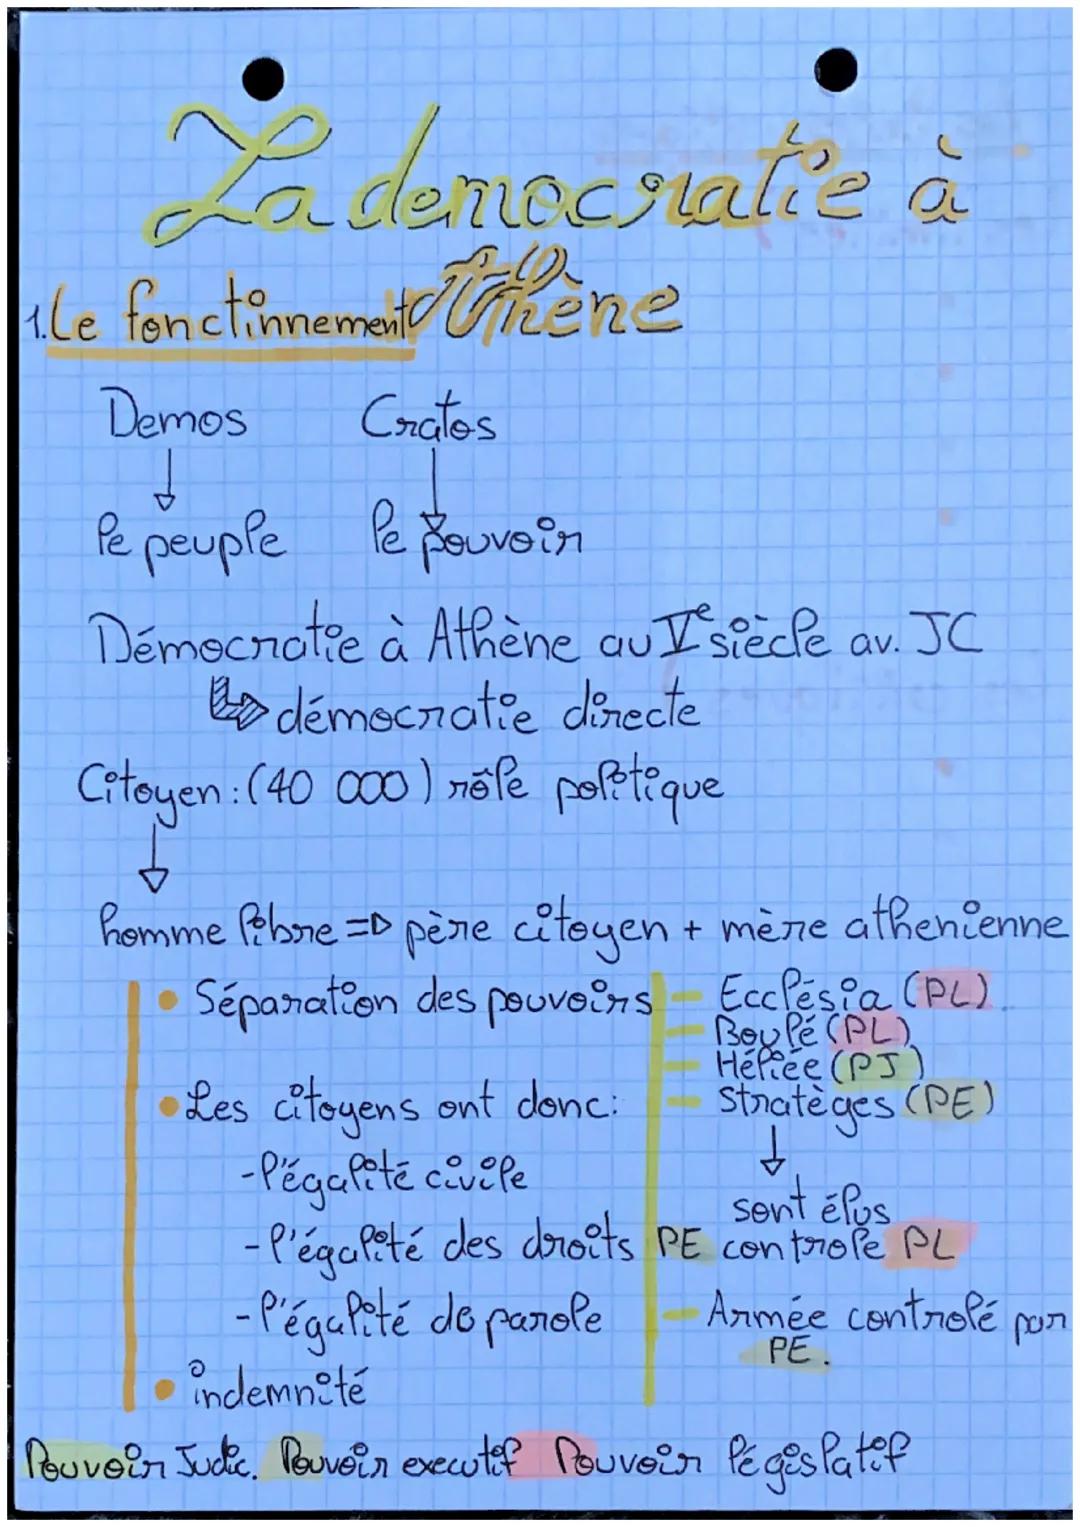 La democratie à
Athène
1. Le fonctinnement
Demos Cratos
le peuple le pouvoir
Démocratie à Athène au Ve siècle av. JC
démocratie directe
Citoyen : (40 000) rôle politique
homme libre => père citoyen + mère athenienne
• Séparation des pouvoirs
- Ecclésia (PL)
- Boulé (PL)
- Héliée (PJ)
- Stratèges (PE)
sont élus
PE controle PL
- Armée controlé par
PE.
• Les citoyens ont donc:
- l'égalité civile
- l'égalité des droits
- l'égalité de parole
• indemnité
Pouvoir Judic. Pouvoir executif Pouvoir législatif